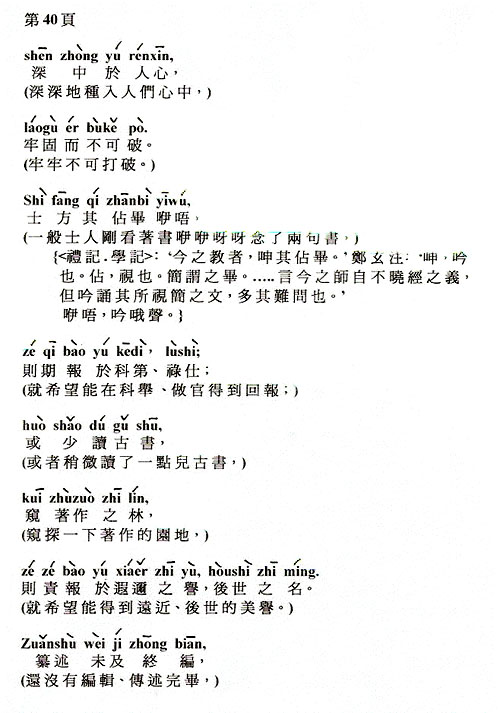 第40頁
shēn zhòng yú rénxīn,
深 中 於 人心，
(深深地種入人們心中，)
láogù ér bùkě pò.
牢固而不可破。
(牢牢不可打破。)
Shì fāng qí zhānbì yīwú,
士 方其 佔畢 咿唔，
(一般士人剛看著書咿咿呀呀念了兩句書，)
{<禮記.學記>：‘今之教者，呻其佔畢。’鄭玄注：‘呻，吟
也。佔，視也。簡謂之畢。…..言今之師自不曉經之義，
但吟誦其所視簡之文，多其難問也。’
咿唔，吟哦聲。}
zé qī bào yú kēdì， lùshì;
則期報 於科第、祿仕；
(就希望能在科舉、做官得到回報；)
huò shǎo dú gǔ shū,
或 少 讀古書，
(或者稍微讀了一點兒古書，)
kuī zhùzuò zhī lín,
窺 著作 之 林，
(窺探一下著作的園地，)
zé zé bào yú xiáěr zhī yù, hòushì zhī míng.
則責報 於遐邇 之 譽，後世 之 名。
(就希望能得到遠近、後世的美譽。)
Zuǎnshù wèi jí zhōng biān,
纂述 未及 終 編，
(還沒有編輯、傳述完畢，)